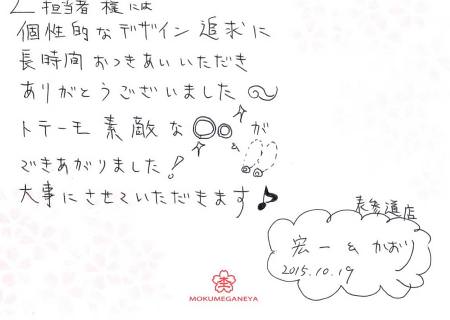 担当者 様には
個性的なデザイン 追求に
長時間 おつきあいいただき
ありがとうございました
トテーモ 素敵な○○が
できあがりました!
大事にさせていただきます♪
表参道店
宏一 & かおり
2015.10.19
MOKUMEGANEYA